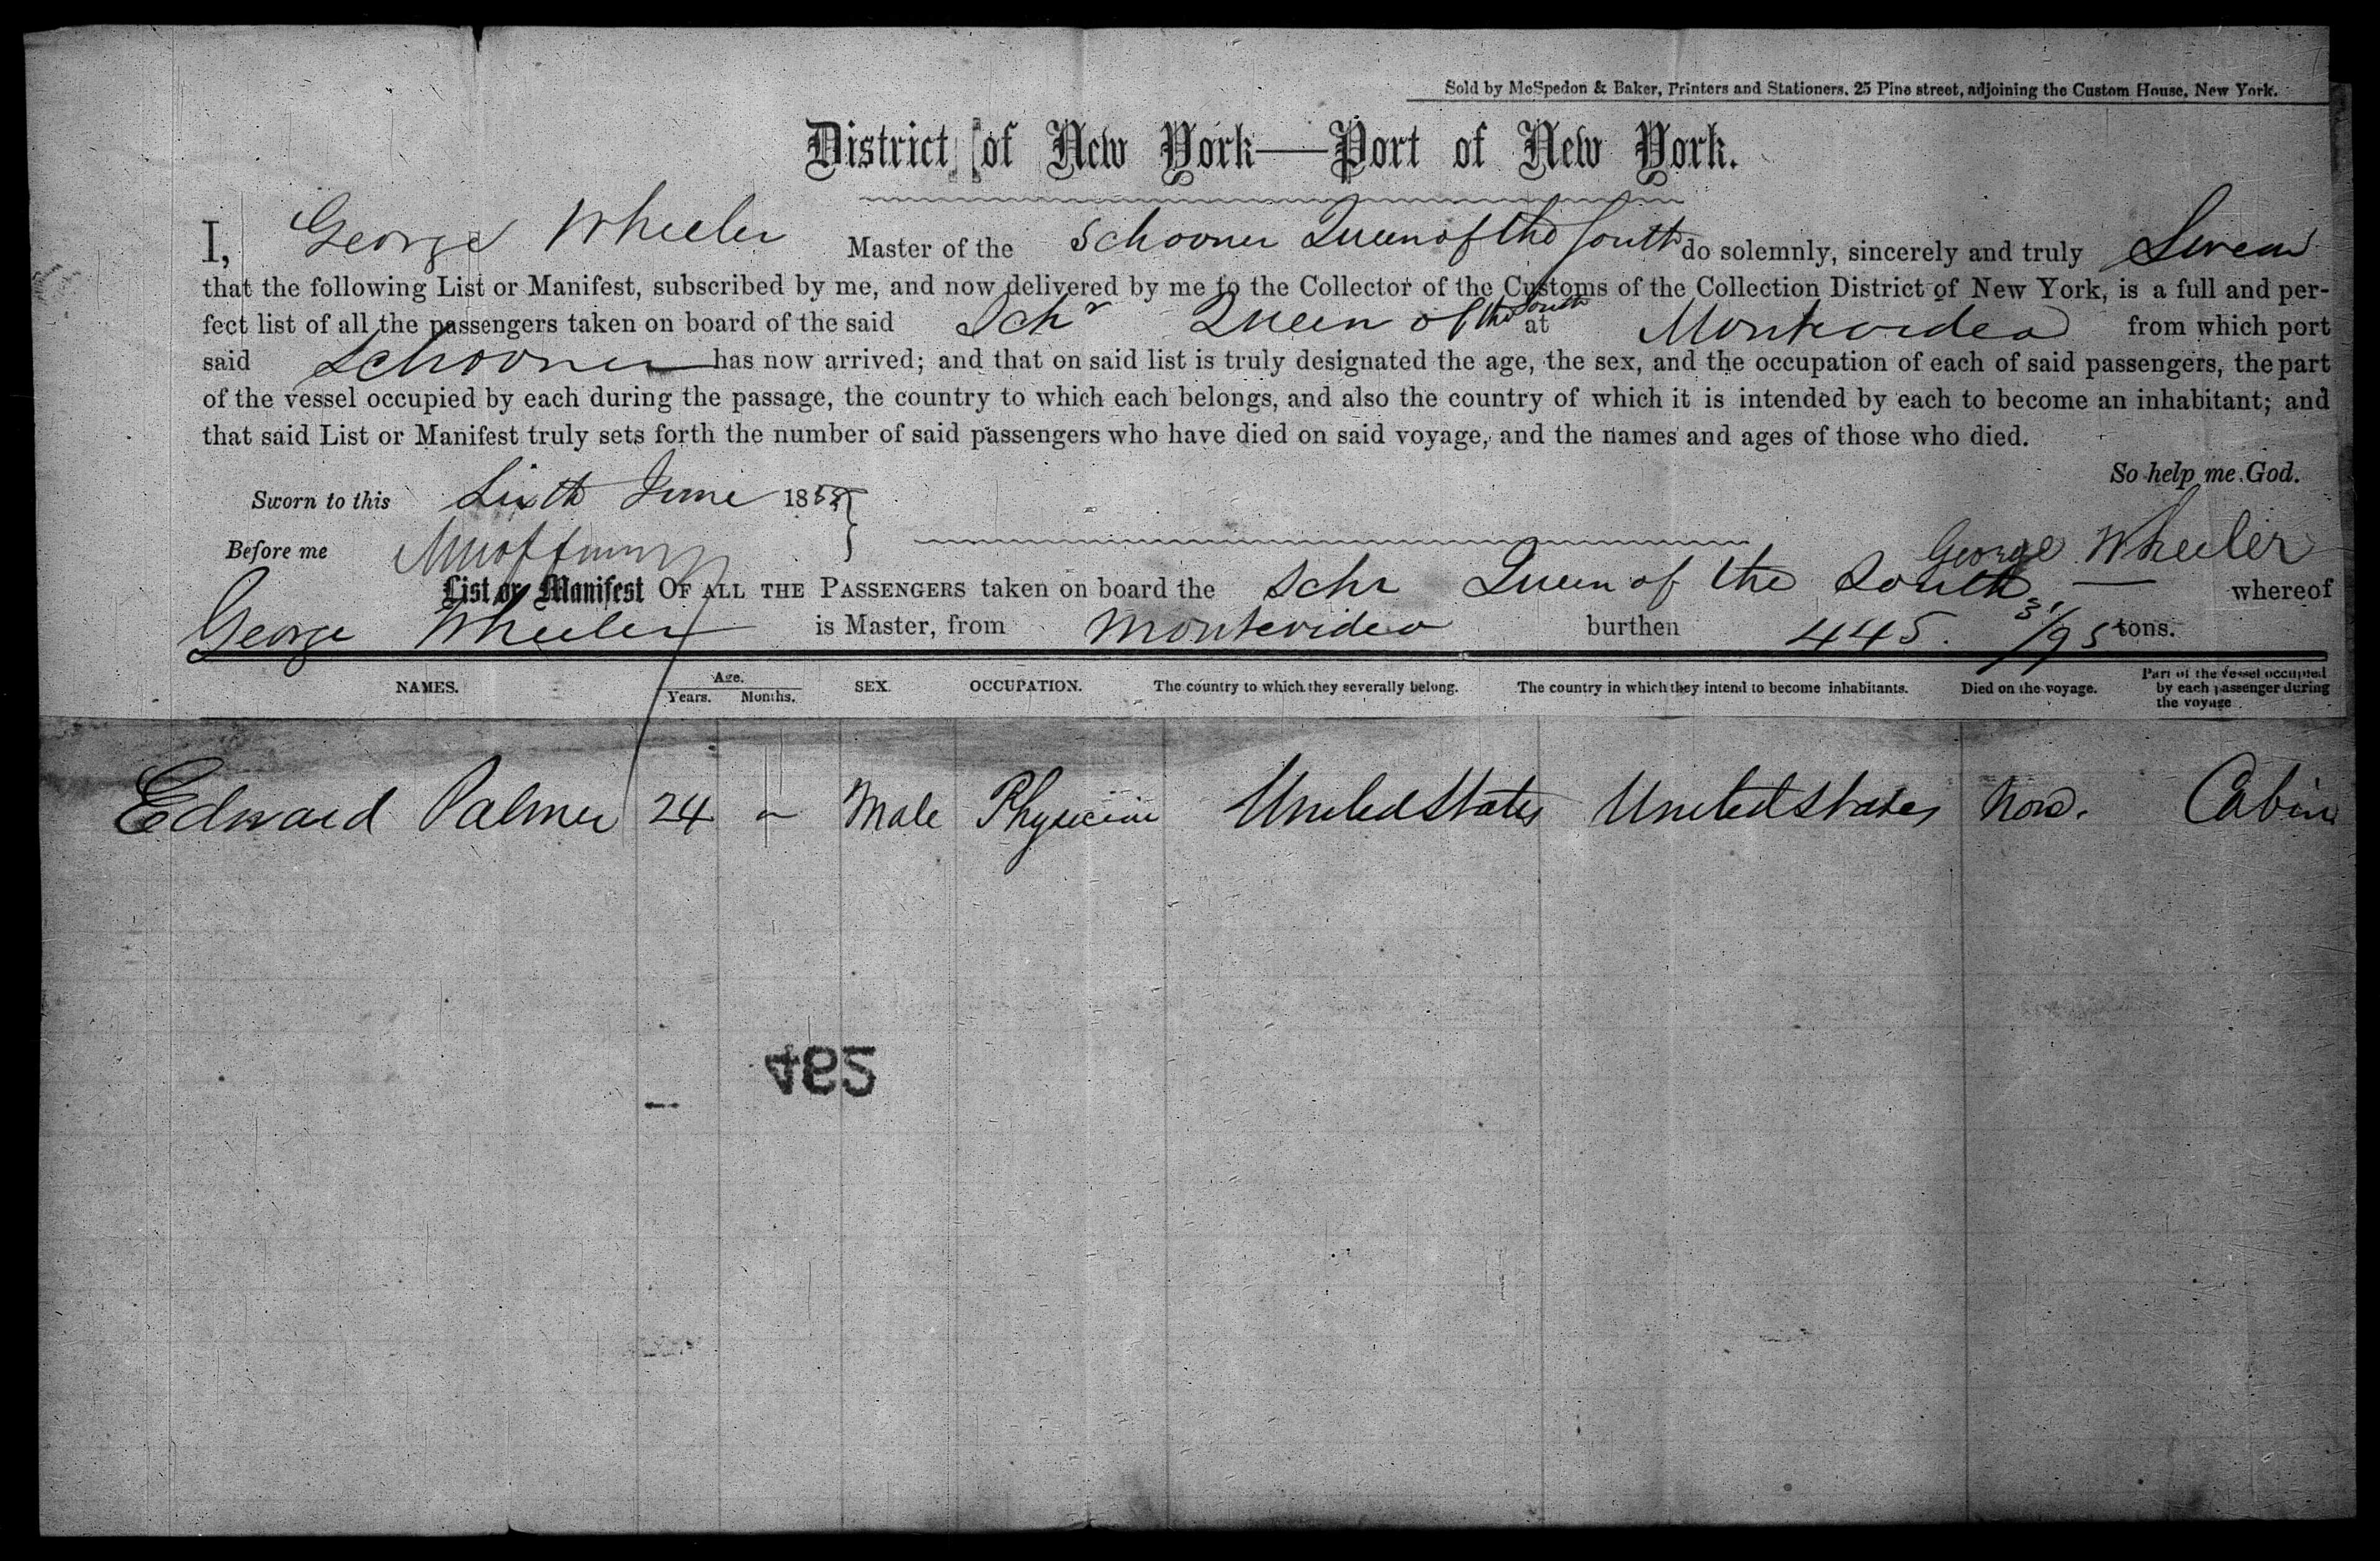 Sold by McSpedon & Baker, Printers and Stationers. 25 Pine street, adjoining the Custom House, New York.
District of New York—Port of New York.
I, George Wheeler Master of the Schooner Queen of the South do solemnly, sincerely and truly Swear
that the following List or Manifest, subscribed by me, and now delivered by me to the Collector of the Customs of the Collection District of New York, is a full and per-
fect list of all the passengers taken on board of the said Schr Queen of the South at Montevideo from which port
said Schooner has now arrived; and that on said list is truly designated the age, the sex, and the occupation of each of said passengers, the part
of the vessel occupied by each during the passage, the country to which each belongs, and also the country of which it is intended by each to become an inhabitant; and
that said List or Manifest truly sets forth the number of said passengers who have died on said voyage, and the names and ages of those who died.
So help me God.
Sworn to this Sixth June 1858
Before me
George Wheeler
List or Manifest OF ALL THE PASSENGERS taken on board the Schr Queen of the South whereof
George Wheeler is Master, from Montevideo burthen 445. 31/95 tons.
NAMES. Age. Years. Months. SEX. OCCUPATION. The country to which they severally belong. The country in which they intend to become inhabitants. Died on the voyage. Part of the vessel occupied by each passenger during the voyage
Edward Palmer 24 - Male Physician United States United States None. Cabin
482